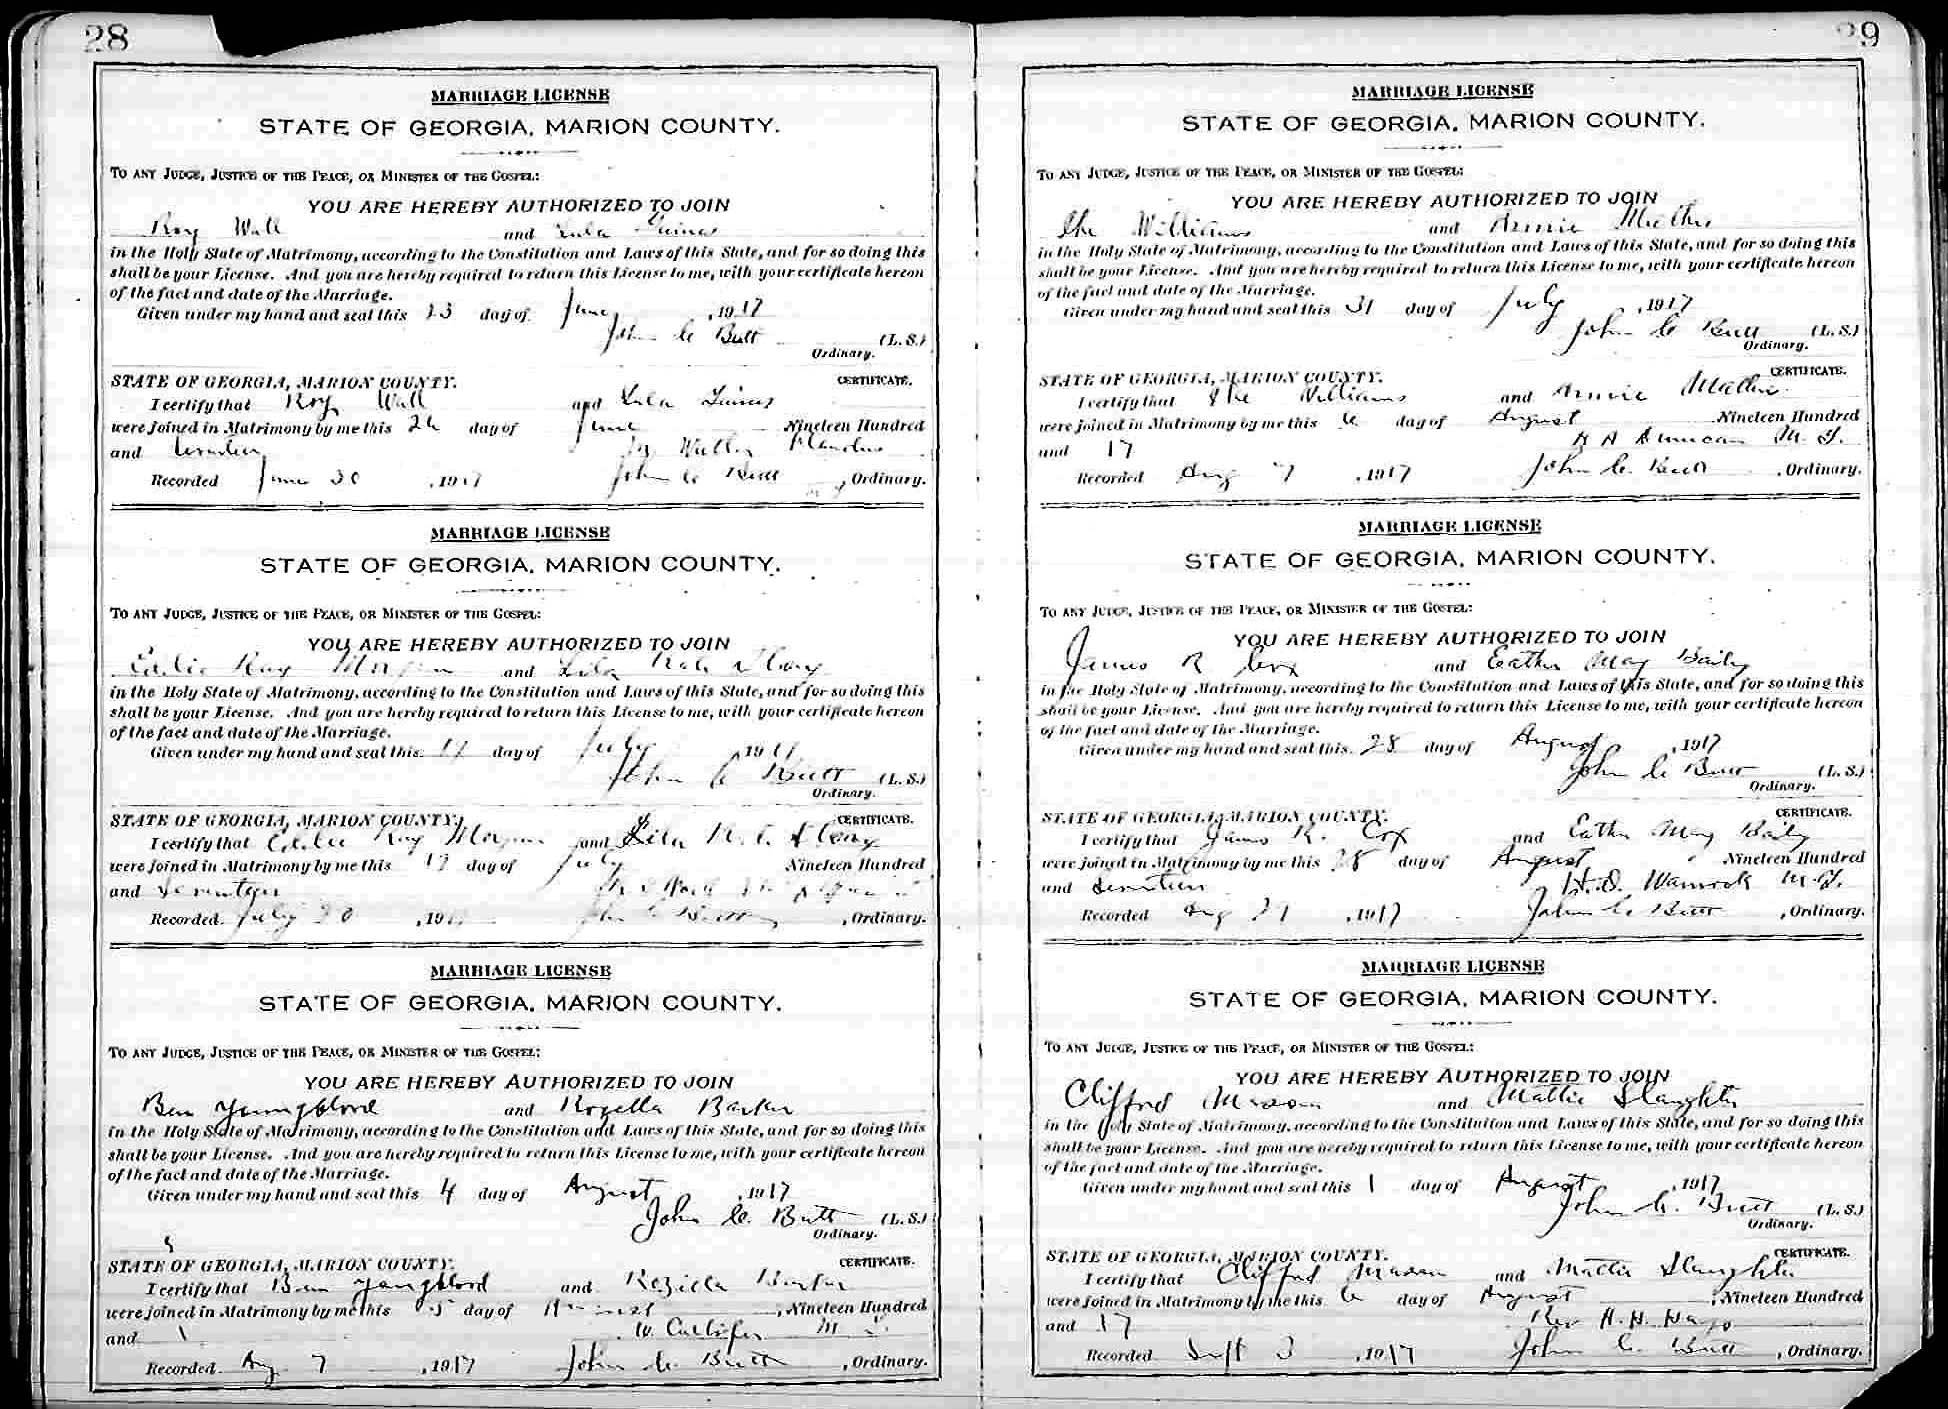 28
MARRIAGE LICENSE
STATE OF GEORGIA, MARION COUNTY.
TO ANY JUDGE, JUSTICE OF THE PEACE, OR MINISTER OF THE GOSPEL:
YOU ARE HEREBY AUTHORIZED TO JOIN
Roy Wall and Lula
in the Holy State of Matrimony, according to the Constitution and Laws of this State, and for so doing this
shall be your License. And you are hereby required to return this License to me, with your certificate hereon
of the fact and date of the Marriage.
Given under my hand and seal this 23 day of June, 1917
John C Butt (L. S.)
Ordinary.
STATE OF GEORGIA, MARION COUNTY. CERTIFICATE.
I certify that Roy Wall and Lula
were joined in Matrimony by me this day of June Nineteen Hundred
and
Recorded June 30, 1917 John C Butt, Ordinary.
MARRIAGE LICENSE
STATE OF GEORGIA, MARION COUNTY.
TO ANY JUDGE, JUSTICE OF THE PEACE, OR MINISTER OF THE GOSPEL:
YOU ARE HEREBY AUTHORIZED TO JOIN
Eddie Ray Morgan and Lila
in the Holy State of Matrimony, according to the Constitution and Laws of this State, and for so doing this
shall be your License. And you are hereby required to return this License to me, with your certificate hereon
of the fact and date of the Marriage.
Given under my hand and seal this 17 day of July, 1917
John C Butt (L. S.)
Ordinary.
STATE OF GEORGIA, MARION COUNTY. CERTIFICATE.
I certify that Eddie Ray Morgan and Lila
were joined in Matrimony by me this 17 day of July Nineteen Hundred
and Seventeen
Recorded July 20, 1917 John C Butt, Ordinary.
MARRIAGE LICENSE
STATE OF GEORGIA, MARION COUNTY.
TO ANY JUDGE, JUSTICE OF THE PEACE, OR MINISTER OF THE GOSPEL:
YOU ARE HEREBY AUTHORIZED TO JOIN
Ben Youngblood and Rozella Barker
in the Holy State of Matrimony, according to the Constitution and Laws of this State, and for so doing this
shall be your License. And you are hereby required to return this License to me, with your certificate hereon
of the fact and date of the Marriage.
Given under my hand and seal this 4 day of August, 1917
John C. Butt (L. S.)
Ordinary.
STATE OF GEORGIA, MARION COUNTY. CERTIFICATE.
I certify that Ben Youngblood and Rozella Barker
were joined in Matrimony by me this 5 day of August, Nineteen Hundred
and
W.
Recorded Aug 7, 1917 John C. Butt, Ordinary.
29
MARRIAGE LICENSE
STATE OF GEORGIA, MARION COUNTY.
TO ANY JUDGE, JUSTICE OF THE PEACE, OR MINISTER OF THE GOSPEL:
YOU ARE HEREBY AUTHORIZED TO JOIN
Ike Williams and Annie Mathis
in the Holy State of Matrimony, according to the Constitution and Laws of this State, and for so doing this
shall be your License. And you are hereby required to return this License to me, with your certificate hereon
of the fact and date of the Marriage.
Given under my hand and seal this 31 day of July, 1917
John C Butt (L. S.)
Ordinary.
STATE OF GEORGIA, MARION COUNTY. CERTIFICATE.
I certify that Ike Williams and Annie Mathis
were joined in Matrimony by me this 6 day of August Nineteen Hundred
and 17 Duncan M. G.
Recorded Aug 7, 1917 John C. Butt, Ordinary.
MARRIAGE LICENSE
STATE OF GEORGIA, MARION COUNTY.
TO ANY JUDGE, JUSTICE OF THE PEACE, OR MINISTER OF THE GOSPEL:
YOU ARE HEREBY AUTHORIZED TO JOIN
James R Cox and Eather May Baily
in the Holy State of Matrimony, according to the Constitution and Laws of this State, and for so doing this
shall be your License. And you are hereby required to return this License to me, with your certificate hereon
of the fact and date of the Marriage.
Given under my hand and seal this 28 day of August, 1917
John C Butt (L. S.)
Ordinary.
STATE OF GEORGIA, MARION COUNTY. CERTIFICATE.
I certify that James R. Cox and Eather May Baily
were joined in Matrimony by me this 28 day of August Nineteen Hundred
and Seventeen H. S. Warnock M. G.
Recorded Aug 29, 1917 John C Butt, Ordinary.
MARRIAGE LICENSE
STATE OF GEORGIA, MARION COUNTY.
TO ANY JUDGE, JUSTICE OF THE PEACE, OR MINISTER OF THE GOSPEL:
YOU ARE HEREBY AUTHORIZED TO JOIN
Clifford Mason and Mattie Slaughter
in the Holy State of Matrimony, according to the Constitution and Laws of this State, and for so doing this
shall be your License. And you are hereby required to return this License to me, with your certificate hereon
of the fact and date of the Marriage.
Given under my hand and seal this 1 day of August, 1917
John C. Butt (L. S.)
Ordinary.
STATE OF GEORGIA, MARION COUNTY. CERTIFICATE.
I certify that Clifford Mason and Mattie Slaughter
were joined in Matrimony by me this 6 day of August, Nineteen Hundred
and 17 Rev H. H. Hays
Recorded Sept 3, 1917 John C. Butt, Ordinary.